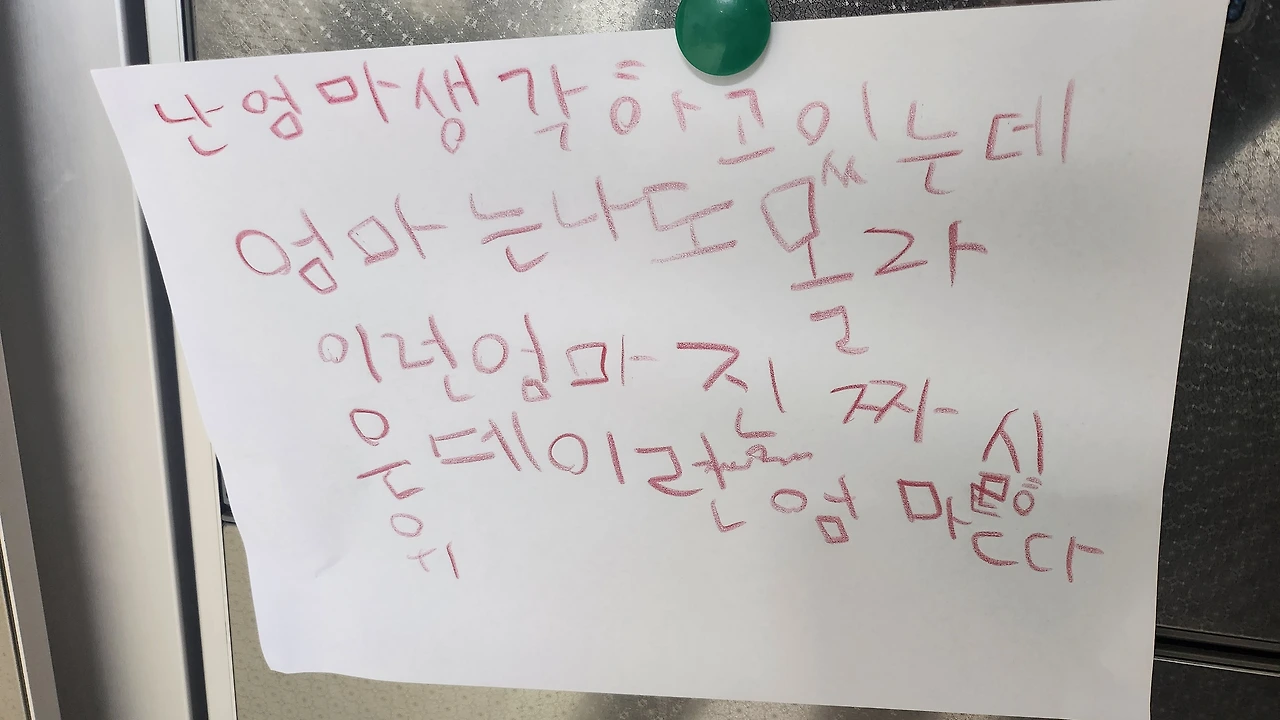 난엄마생각하고있는데
엄마는나도몰라
이런엄마 진짜 싫
은데이란엄마